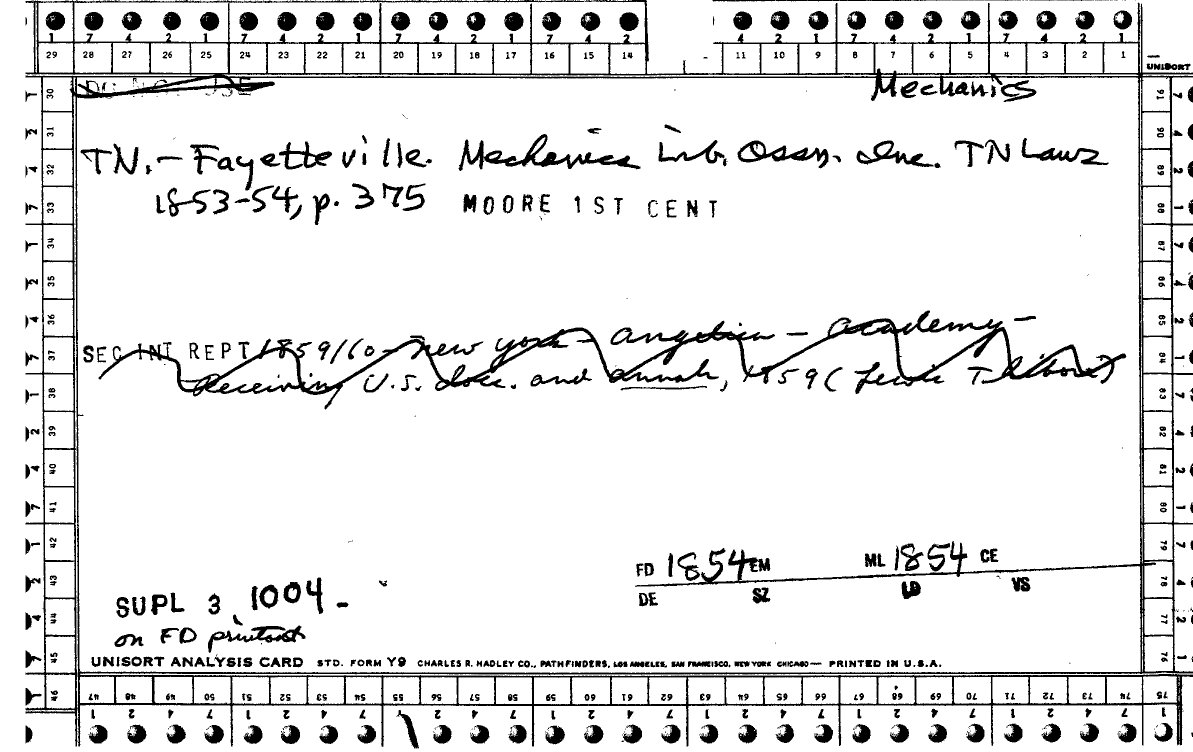 7 4 2 1 7 4 2 1 7 4 2 1 7 4 2 4 2 1 7 4 2 1 7 4 2 1
29 28 27 26 25 24 23 22 21 20 19 18 17 16 15 14 11 10 9 8 7 6 5 4 3 2 1
UNISORT
Mechanics
TN.- Fayetteville. Mechanics Lib. Assn. Inc. TN Laws
1853-54, p. 375 MOORE 1ST CENT
SEC INT REPT 1859/60- New York- Angelica - academy-
Receiving U.S. docs. and annals, 1859 (Lewis
FD 1854 EM ML 1854 CE
DE SZ LD VS
SUPL 3 1004-
on FD printout
UNISORT ANALYSIS CARD STD. FORM Y9 CHARLES R. HADLEY CO., PATHFINDERS, LOS ANGELES, SAN FRANCISCO, NEW YORK CHICAGO — PRINTED IN U.S.A.
30 31 32 33 34 35 36 37 38 39 40 41 42 43 44 45 46
47 48 49 50 51 52 53 54 55 56 57 58 59 60 61 62 63 64 65 66 67 68 69 70 71 72 73 74 75
76 77 78 79 80 81 82 83 84 85 86 87 88 89 90 91